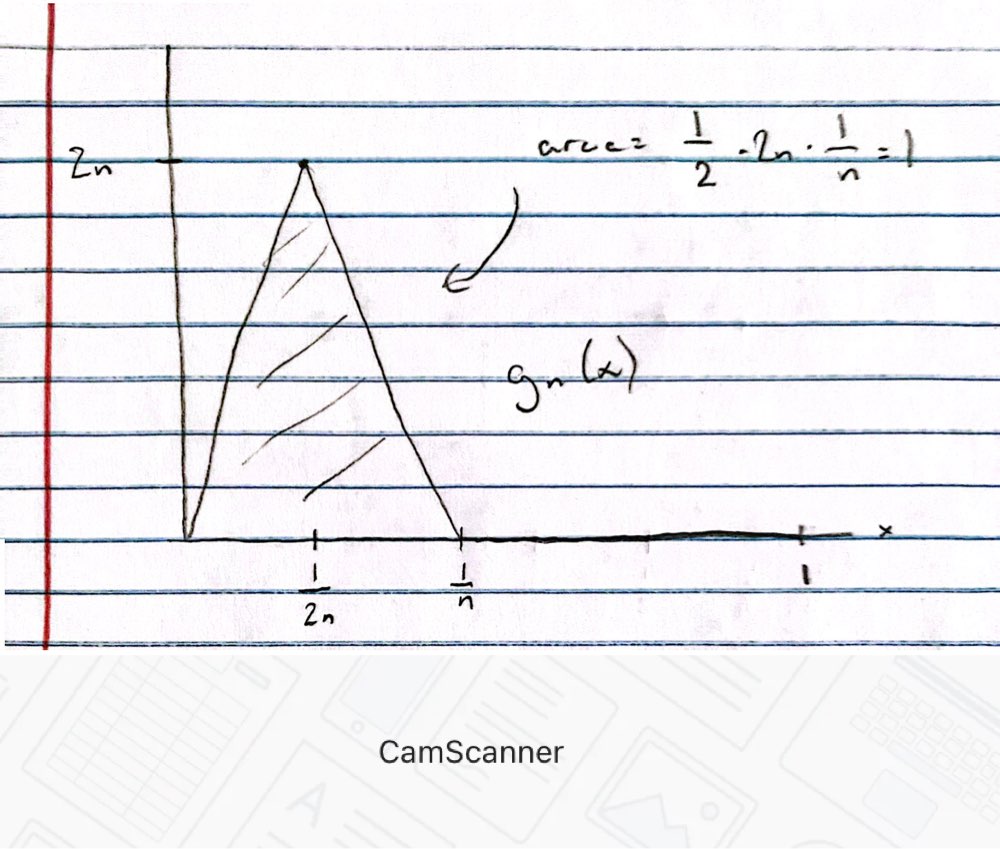 area = 1/2 · 2n · 1/n = 1
2n
gₙ(x)
x
1/2n
1/n
1
CamScanner